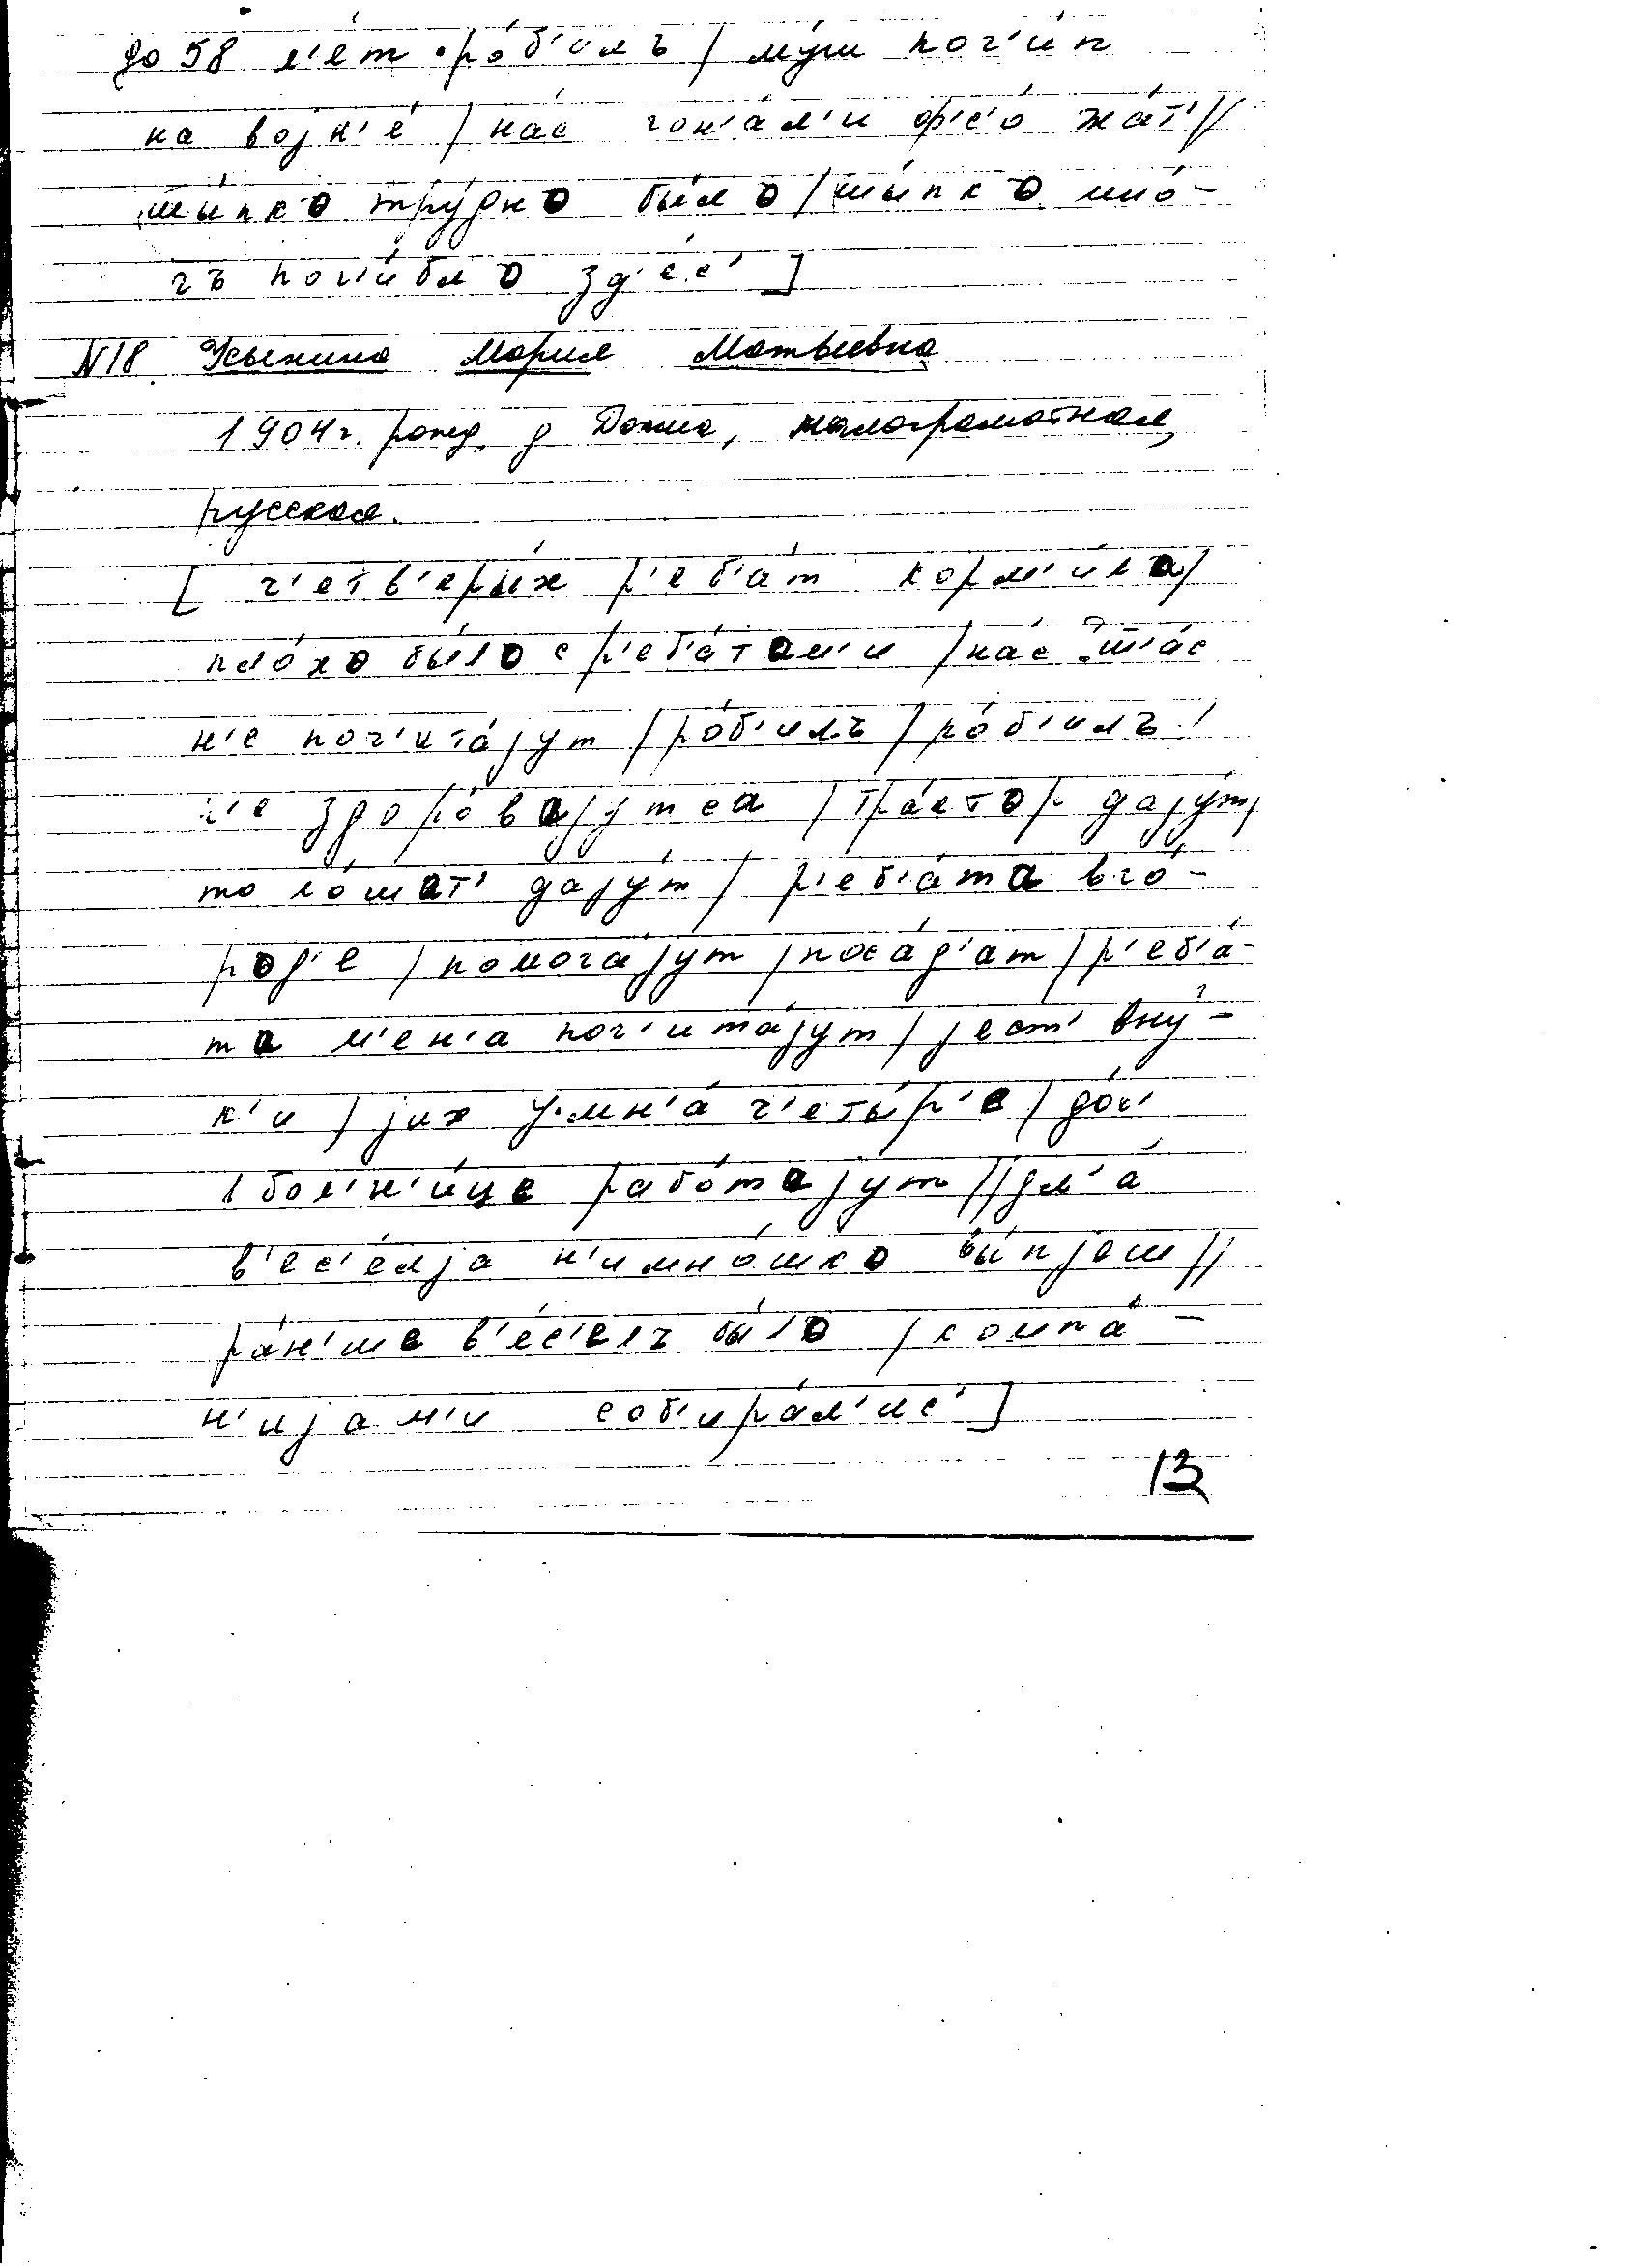 до 58 л'е́т ро́б'илъ / му́ш пог'и́п
на војн'е́ / на́с гон'а́л'и ф'с'о́ жа́т' //
шы́пко тру́дно бы́ло / шы́пко мно́-
гъ пог'и́бло зд'е́с' ]
N18. Усынина Мария Матвеевна
1904г. рожд. д Дошма, малограмотная,
русская.
[ ч'етв'еры́х р'еб'а́т корм'и́ла /
пло́хо бы́ло с р'еб'а́там'и / на́с ш'а́с
н'е поч'ита́јут / ро́б'илъ / ро́б'илъ /
н'е здоро́вајутса / тра́ктор дају́т /
то ло́шат' дају́т / р'еб'а́та вго́-
род'е / помога́јут / поса́д'ат / р'еб'а́-
та м'ен'а поч'ита́јут / јест' вну́-
к'и / јих у м'н'а́ ч'еты́р'е / до́ч'
в бол'н'и́це рабо́тајут // дл'а́
в'ес'е́лја н'имно́шко вы́пјеш //
ра́н'ше в'е́с'елъ бы́ло / компа́-
н'ијам'и соб'ира́л'ис' ]
13